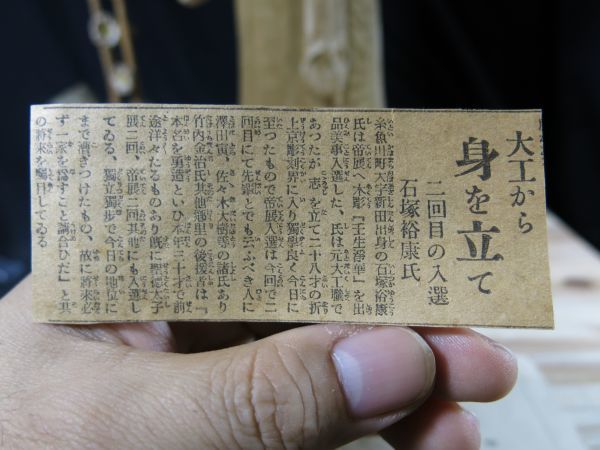 大工から
身を立て
二回目の入選
石塚裕康氏
糸魚川町大字新田出身の石塚裕康
氏は帝展へ木彫『壬生淨華』を出
品美事入選した、氏は元大工職で
あつたが 志を立て二十八才の折
上京彫刻界に入り獨學良く今日に
至つたもので帝展入選は今回で二
回目にて先輩とでも云ふべき人に
澤田寅、佐々木大樹等の諸氏あり
竹内金治氏其他郷里の後援者は『
本名を勇造といひ本年三十才で前
途洋々たるものあり既に聖德太子
展二回、帝展二回其他にも入選し
てゐる 獨立獨步で今日の地位に
まで漕ぎつけたもの、故に將來必
ず一家を爲すこと請合ひだ』と其
の將來を囑目してゐる